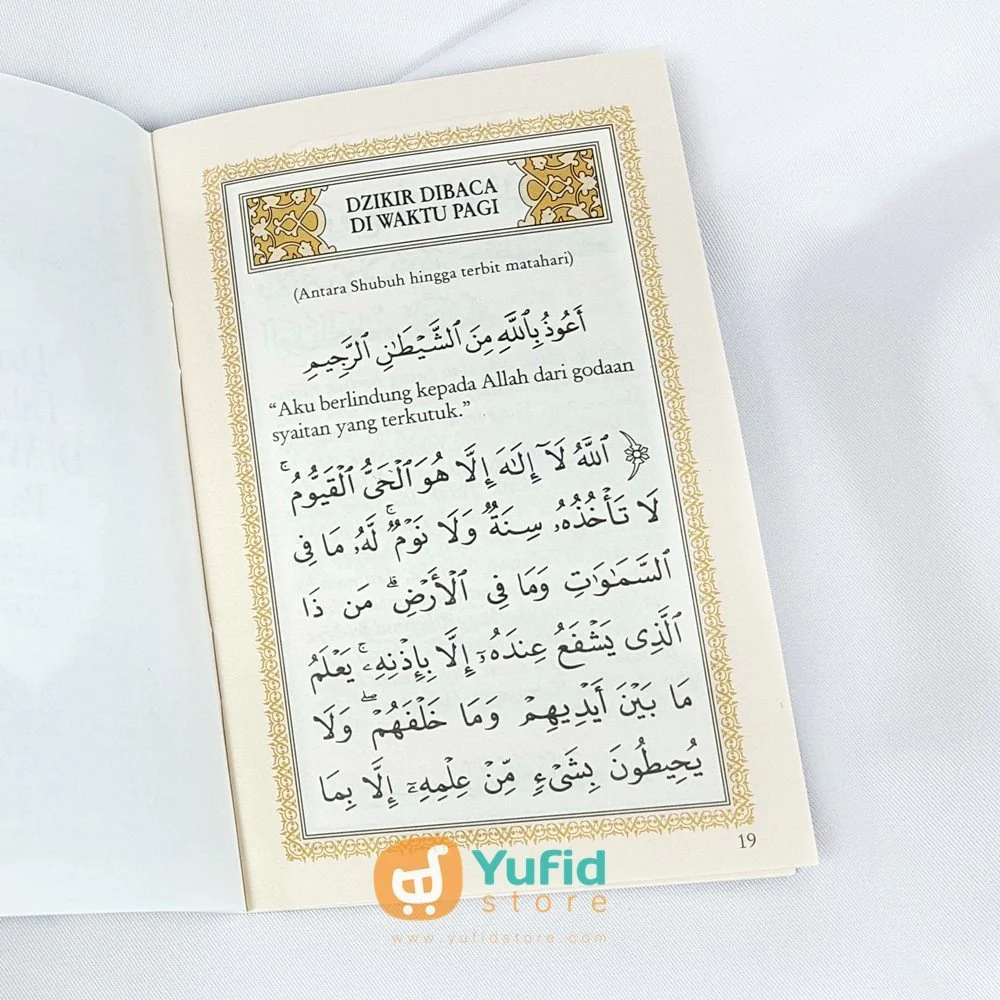 DZIKIR DIBACA
DI WAKTU PAGI
(Antara Shubuh hingga terbit matahari)
أَعُوذُ بِٱللَّهِ مِنَ ٱلشَّيْطَٰنِ ٱلرَّجِيمِ
“Aku berlindung kepada Allah dari godaan
syaitan yang terkutuk.”
﴿ ٱللَّهُ لَآ إِلَٰهَ إِلَّا هُوَ ٱلْحَىُّ ٱلْقَيُّومُ ۚ
لَا تَأْخُذُهُۥ سِنَةٌ وَلَا نَوْمٌ ۚ لَّهُۥ مَا فِى
ٱلسَّمَٰوَٰتِ وَمَا فِى ٱلْأَرْضِ ۗ مَن ذَا
ٱلَّذِى يَشْفَعُ عِندَهُۥٓ إِلَّا بِإِذْنِهِۦ ۚ يَعْلَمُ
مَا بَيْنَ أَيْدِيهِمْ وَمَا خَلْفَهُمْ ۖ وَلَا
يُحِيطُونَ بِشَىْءٍ مِّنْ عِلْمِهِۦٓ إِلَّا بِمَا
19
Yufid
store
www.yufidstore.com